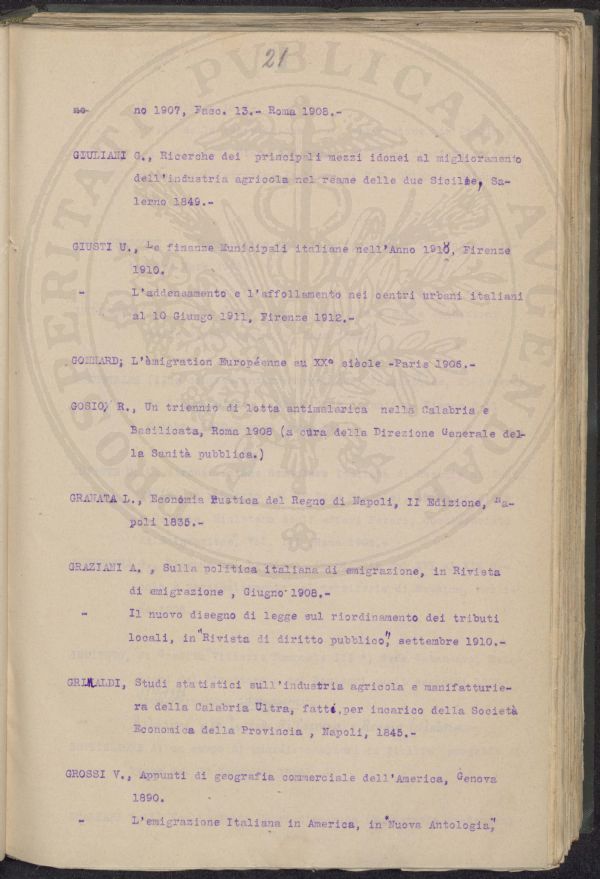 21
no- no 1907, Fasc. 13.- Roma 1908.-
GIULIANI G., Ricerche dei principali mezzi idonei al miglioramento
dell'industria agricola nel reame delle due Sicilie, Sa-
lerno 1849.-
GIUSTI U., Le finanze Municipali italiane nell'Anno 1910, Firenze
1910.
- L'addensamento e l'affollamento nei centri urbani italiani
al 10 Giungo 1911, Firenze 1912.-
GONNARD; L'èmigration Européenne au XX° siècle -Paris 1906.-
GOSIO, R., Un triennio di lotta antimalarica nella Calabria e
Basilicata, Roma 1908 (a cura della Direzione Generale del-
la Sanità pubblica.)
GRANATA L., Economia Rustica del Regno di Napoli, II Edizione, Na-
poli 1835.-
GRAZIANI A. , Sulla politica italiana di emigrazione, in Rivista
di emigrazione , Giugno 1908.-
- Il nuovo disegno di legge sul riordinamento dei tributi
locali, in "Rivista di diritto pubblico", settembre 1910.-
GRIMALDI, Studi statistici sull'industria agricola e manifatturie-
ra della Calabria Ultra, fatti per incarico della Società
Economica della Provincia , Napoli, 1845.-
GROSSI V., Appunti di geografia commerciale dell'America, Genova
1890.
- L'emigrazione Italiana in America, in "Nuova Antologia",
PROSPERITATI PUBLICAE AUGENDAE